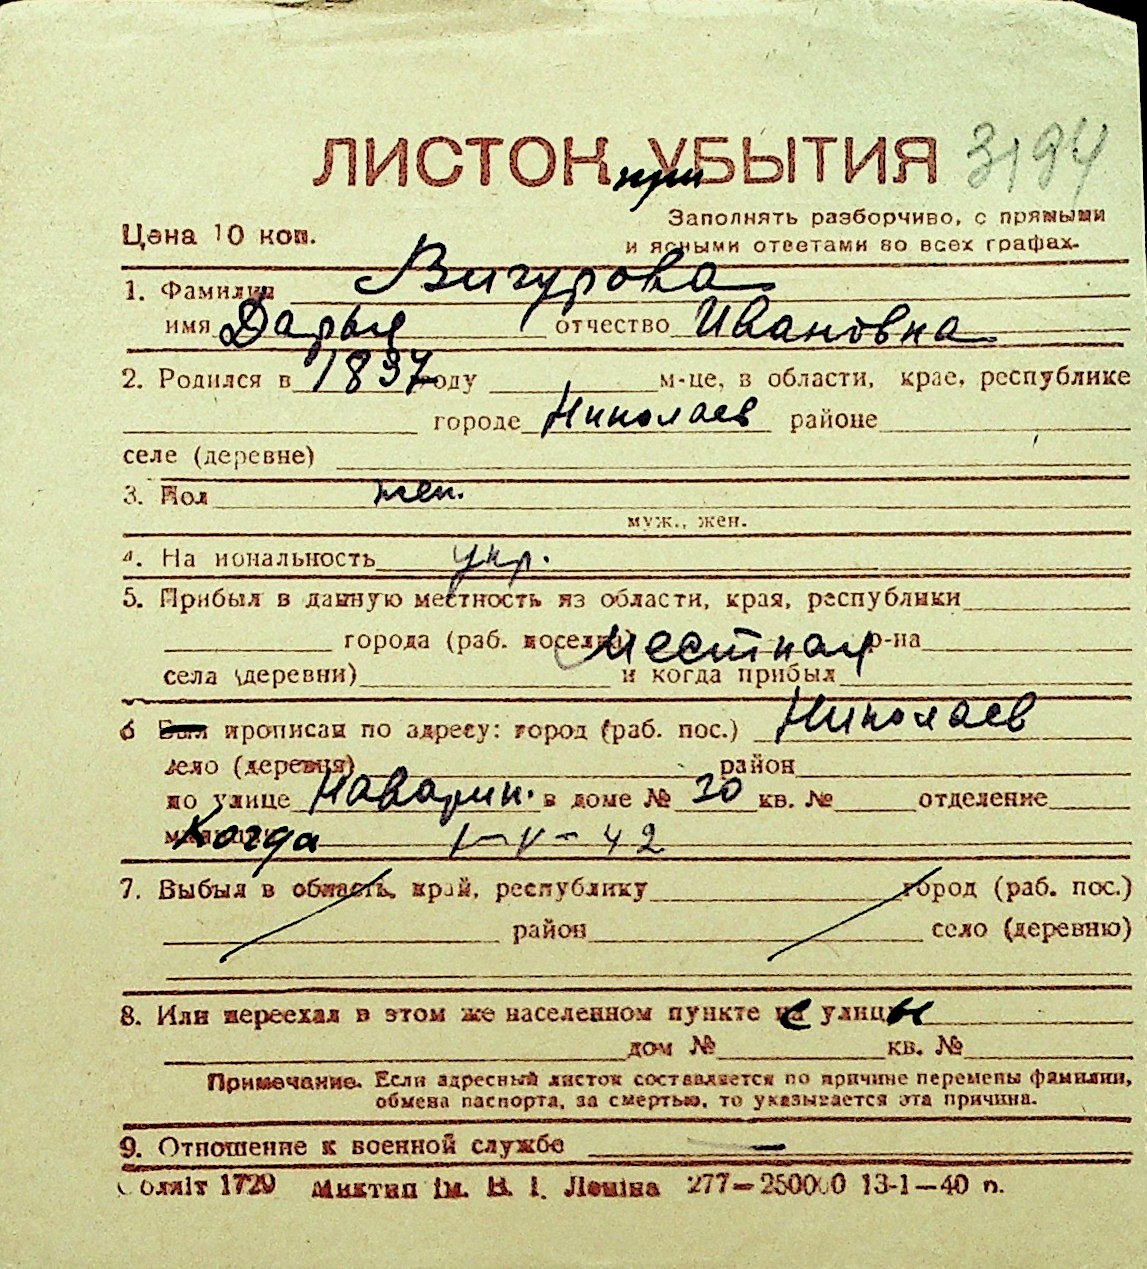 ЛИСТОК при УБЫТИЯ 3194
Цена 10 коп.
Заполнять разборчиво, с прямыми
и ясными ответами во всех графах.
1. Фамилия Вигурова
имя Дарья отчество Ивановна
2. Родился в 1897 году м-це, в области, крае, республике
городе Николаев районе
селе (деревне)
3. Пол жен.
муж., жен.
4. На иональность укр.
5. Прибыл в данную местность из области, края, республики
города (раб. поселка) местная р-на
села (деревни) и когда прибыл
6 Был прописан по адресу: город (раб. пос.) Николаев
село (деревня) район
по улице Наварин. в доме № 30 кв. № отделение
Когда 1-V-42
7. Выбыл в область, край, республику город (раб. пос.)
район село (деревню)
8. Или переехал в этом же населенном пункте с улицы
дом № кв. №
Примечание. Если адресный листок составляется по причине перемены фамилии,
обмена паспорта, за смертью, то указывается эта причина.
9. Отношение к военной службе —
Обліт 1729 Миктип ім. В. І. Леніна 277—250000 13-1—40 п.